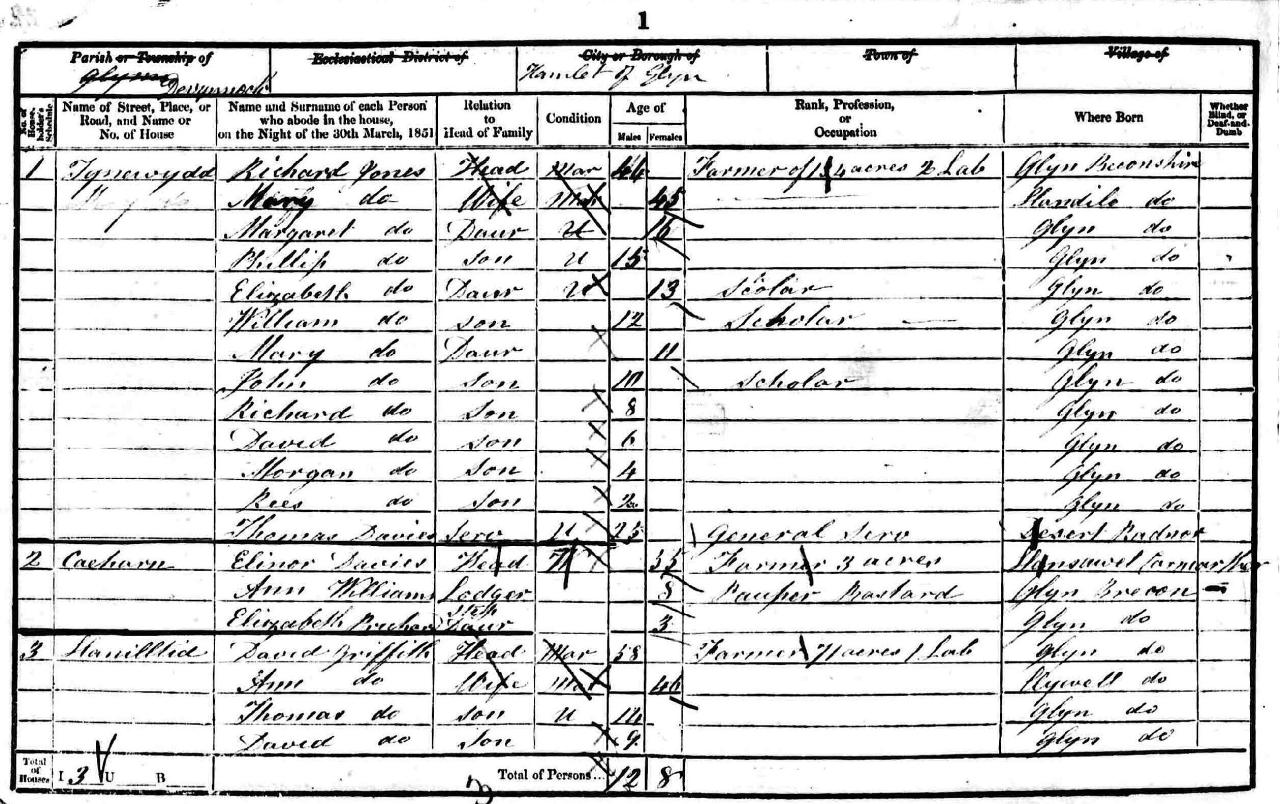 1
Parish or Township of Ecclesiastical District of City or Borough of Town of Village of
Glynn Devynnock Hamlet of Glyn
No. of House-holder's Schedule Name of Street, Place, or Road, and Name or No. of House Name and Surname of each Person who abode in the house, on the Night of the 30th March, 1851 Relation to Head of Family Condition Age of Males Females Rank, Profession, or Occupation Where Born Whether Blind, or Deaf-and-Dumb
1 Tynewydd Richard Jones Head Mar 44 Farmer of 134 acres 2 Lab Glyn Breconshire
Mary do Wife Mar 45 Llandilo do
Margaret do Daur U 16 Glyn do
Phillip do Son U 15 Glyn do
Elizabeth do Daur U 13 Scolar Glyn do
William do Son 12 Scholar Glyn do
Mary do Daur 11 Glyn do
John do Son 10 Scholar Glyn do
Richard do Son 8 Glyn do
David do Son 6 Glyn do
Morgan do Son 4 Glyn do
Rees do Son 2 Glyn do
Thomas Davies Serv U 25 General Serv Radnor
2 Caeharn Elinor Davies Head 55 Farmer 3 acres Llansawel
Ann Williams Lodger 8 Pauper Bastard Glyn Brecon
Elizabeth Prichard Step Daur 3 Glyn do
3 Llanilltid David Griffith Head Mar 58 Farmer 71 acres 1 Lab Glyn do
Ann do Wife Mar 46 Llywell do
Thomas do Son U 14 Glyn do
David do Son 9 Glyn do
Total of Houses I 3 U B Total of Persons... 12 8